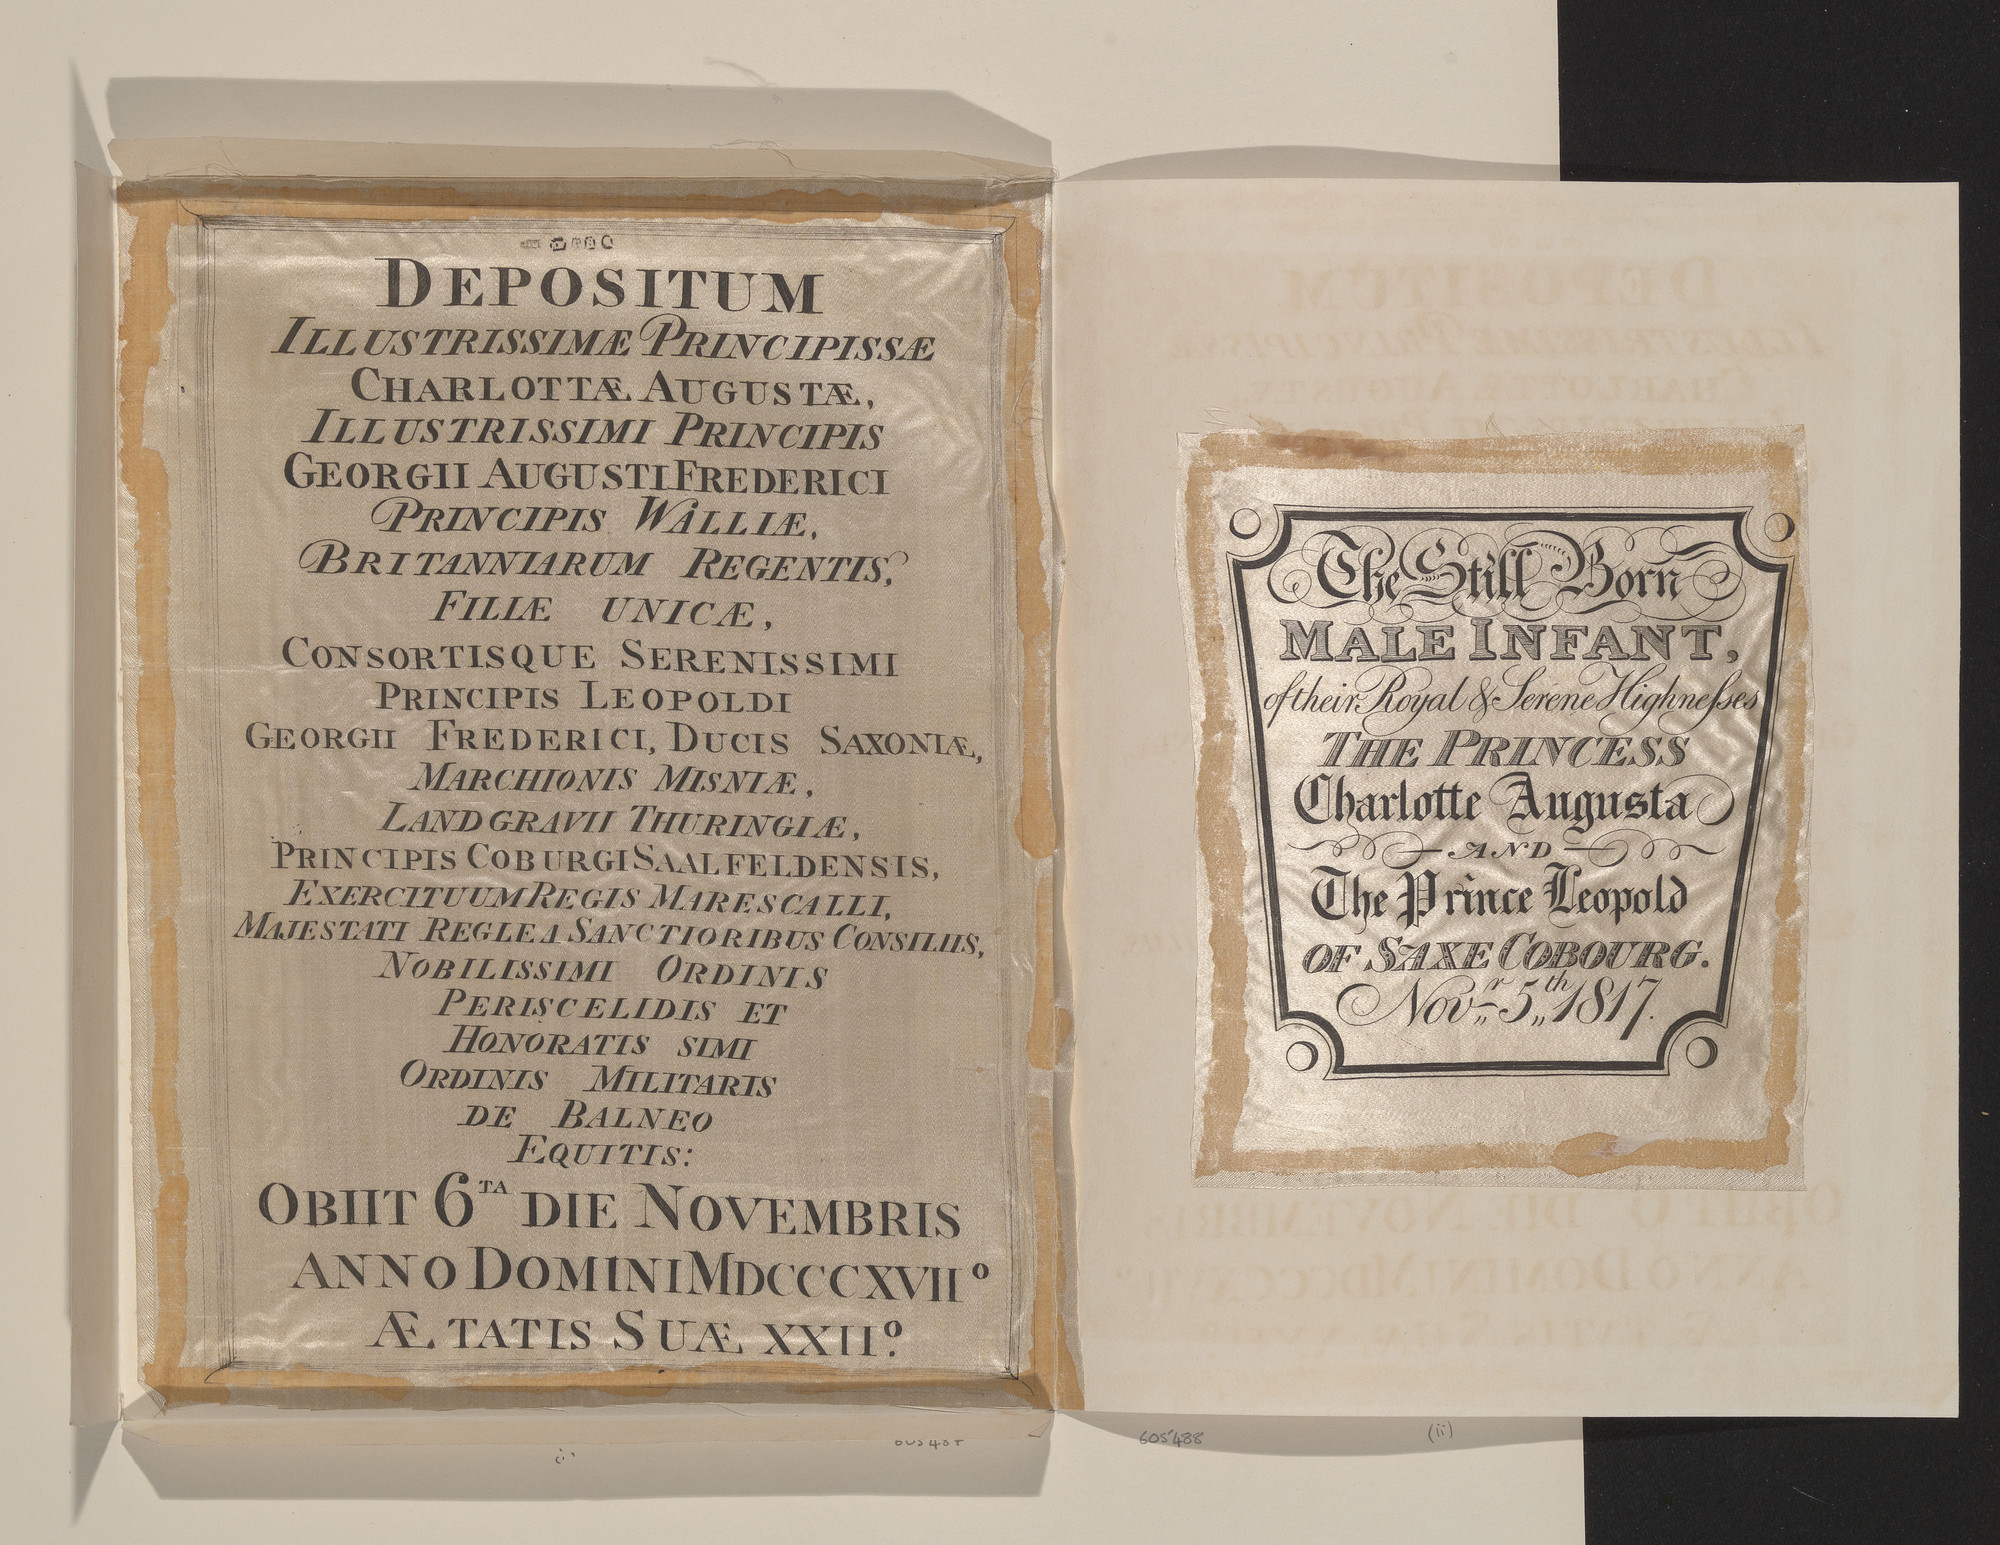 DEPOSITUM
ILLUSTRISSIMÆ PRINCIPISSÆ
CHARLOTTÆ AUGUSTÆ,
ILLUSTRISSIMI PRINCIPIS
GEORGII AUGUSTI FREDERICI
PRINCIPIS WALLIÆ,
BRITANNIARUM REGENTIS,
FILIÆ UNICÆ,
CONSORTISQUE SERENISSIMI
PRINCIPIS LEOPOLDI
GEORGII FREDERICI, DUCIS SAXONIÆ,
MARCHIONIS MISNIÆ,
LANDGRAVII THURINGIÆ,
PRINCIPIS COBURGI SAALFELDENSIS,
EXERCITUUM REGIS MARESCALLI,
MAJESTATI REGLE A SANCTIORIBUS CONSILIIS,
NOBILISSIMI ORDINIS
PERISCELIDIS ET
HONORATIS SIMI
ORDINIS MILITARIS
DE BALNEO
EQUITIS:
OBIIT 6TA DIE NOVEMBRIS
ANNO DOMINI MDCCCXVIIº
ÆTATIS SUÆ XXIIº.
The Still Born
MALE INFANT,
of their Royal & Serene Highneſses
THE PRINCESS
Charlotte Augusta
AND
The Prince Leopold
OF SAXE COBOURG.
Novr. 5th 1817.
605488
(ii)